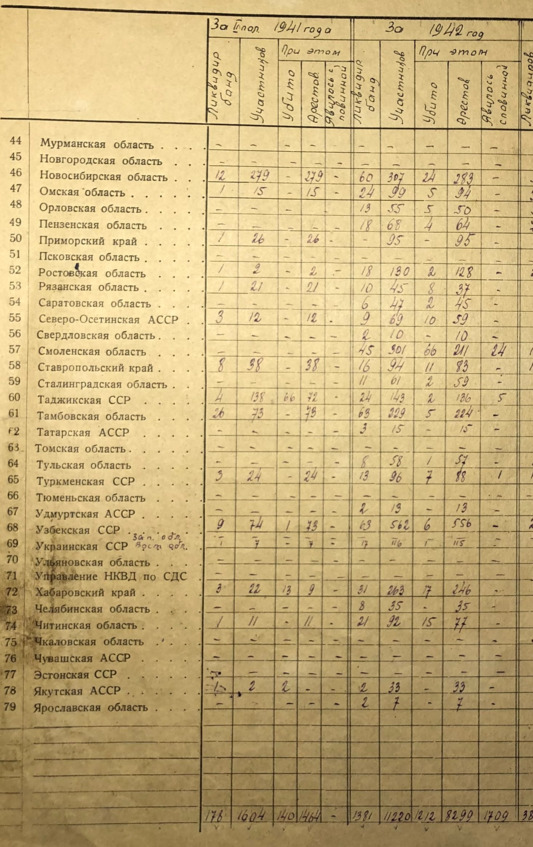 За II пол. 1941 года За 1942 год
При этом При этом
Ликвидир. банд Участников Убито Арестов. Явилось с повинной Ликвидир. банд Участников Убито Арестов. Явилось с повинной
44 Мурманская область . . . . - - - - - - - - - -
45 Новгородская область . . . - - - - - - - - - -
46 Новосибирская область . . 12 279 - 279 - 60 307 24 283 -
47 Омская область . . . . 1 15 - 15 - 24 99 5 94 -
48 Орловская область . . . . - - - - - 13 55 5 50 -
49 Пензенская область . . . - - - - - 18 68 4 64 -
50 Приморский край . . . . 1 26 - 26 - - 95 - 95 -
51 Псковская область . . . . - - - - - - - - - -
52 Ростовская область . . . 1 2 - 2 - 18 130 2 128 -
53 Рязанская область . . . . 1 21 - 21 - 10 45 8 37 -
54 Саратовская область . . . - - - - - 6 47 2 45 -
55 Северо-Осетинская АССР . 3 12 - 12 - 9 69 10 59 -
56 Свердловская область . . - - - - - 2 10 - 10 -
57 Смоленская область . . . - - - - - 45 301 66 211 24
58 Ставропольский край . . . 8 38 - 38 - 16 94 11 83 -
59 Сталинградская область . . - - - - - 11 61 2 59 -
60 Таджикская ССР . . . . 4 138 66 72 - 24 143 2 136 5
61 Тамбовская область . . . 26 73 - 73 - 63 229 5 224 -
62 Татарская АССР . . . . - - - - - 3 15 - 15 -
63 Томская область . . . . . - - - - - - - - - -
64 Тульская область . . . . - - - - - 8 58 1 57 -
65 Туркменская ССР . . . . 3 24 - 24 - 13 96 7 88 1
66 Тюменьская область . . . - - - - - - - - - -
67 Удмуртская АССР . . . . - - - - - 2 13 - 13 -
68 Узбекская ССР . . . . 9 74 1 73 - 63 562 6 556 -
69 Украинская ССР 1 7 - 7 - 17 116 1 115 -
70 Ульяновская область . . . - - - - - - - - - -
71 Управление НКВД по СДС - - - - - - - - - -
72 Хабаровский край . . . . 3 22 13 9 - 31 263 17 246 -
73 Челябинская область . . . - - - - - 8 35 - 35 -
74 Читинская область . . . . 1 11 - 11 - 21 92 15 77 -
75 Чкаловская область . . . - - - - - - - - - -
76 Чувашская АССР . . . . - - - - - - - - - -
77 Эстонская ССР . . . . - - - - - - - - - -
78 Якутская АССР . . . . . 1 2 2 - - 2 33 - 33 -
79 Ярославская область . . . - - - - - 2 7 - 7 -
176 1604 140 1464 - 1381 11220 1212 8299 1709